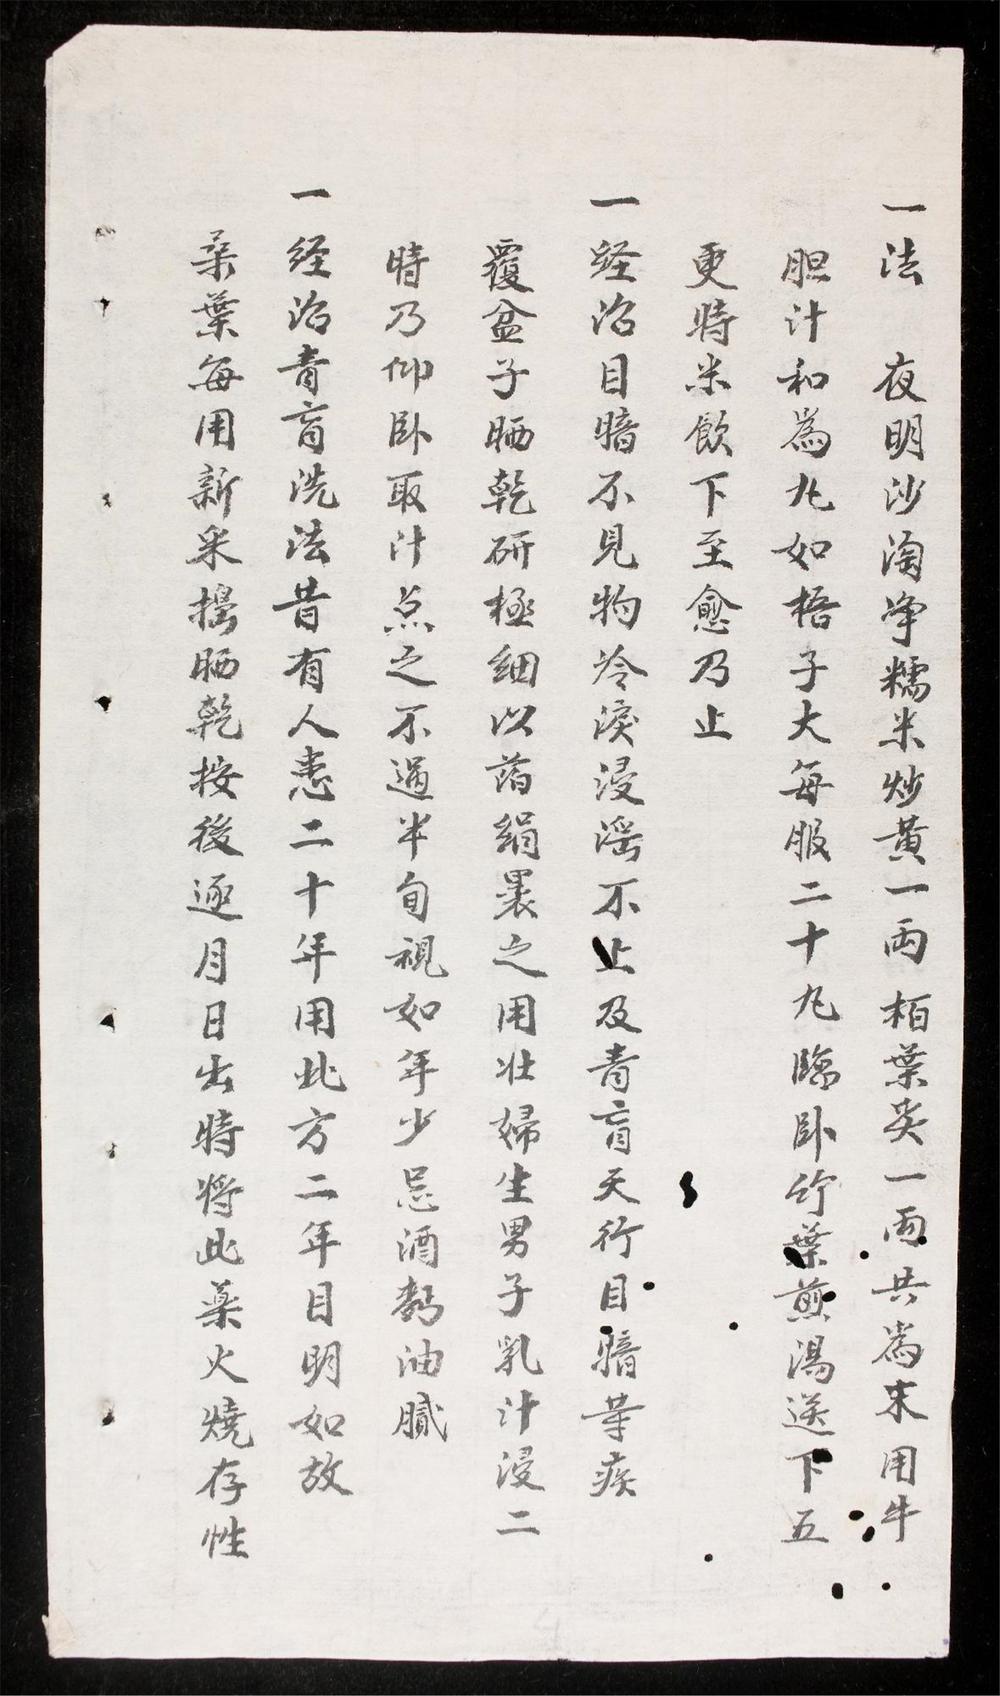 一法　夜明沙淘净糯米炒黄一両柏葉炙一両共爲末用牛
胆汁和爲丸如梧子大每服二十九臨卧竹葉煎湯送下五
更時米飲下至愈乃止
一経治目暗不見物冷淚浸淫不止及青盲天行目暗等疾
覆盆子晒乾研極細以薄絹裹之用壮婦生男子乳汁浸二
時乃仰卧取汁点之不過半旬視如年少忌酒麪油膩
一経治青盲洗法昔有人患二十年用此方二年目明如故
桒葉每用新采揺晒乾按後逐月日出時将此薬火燒存性